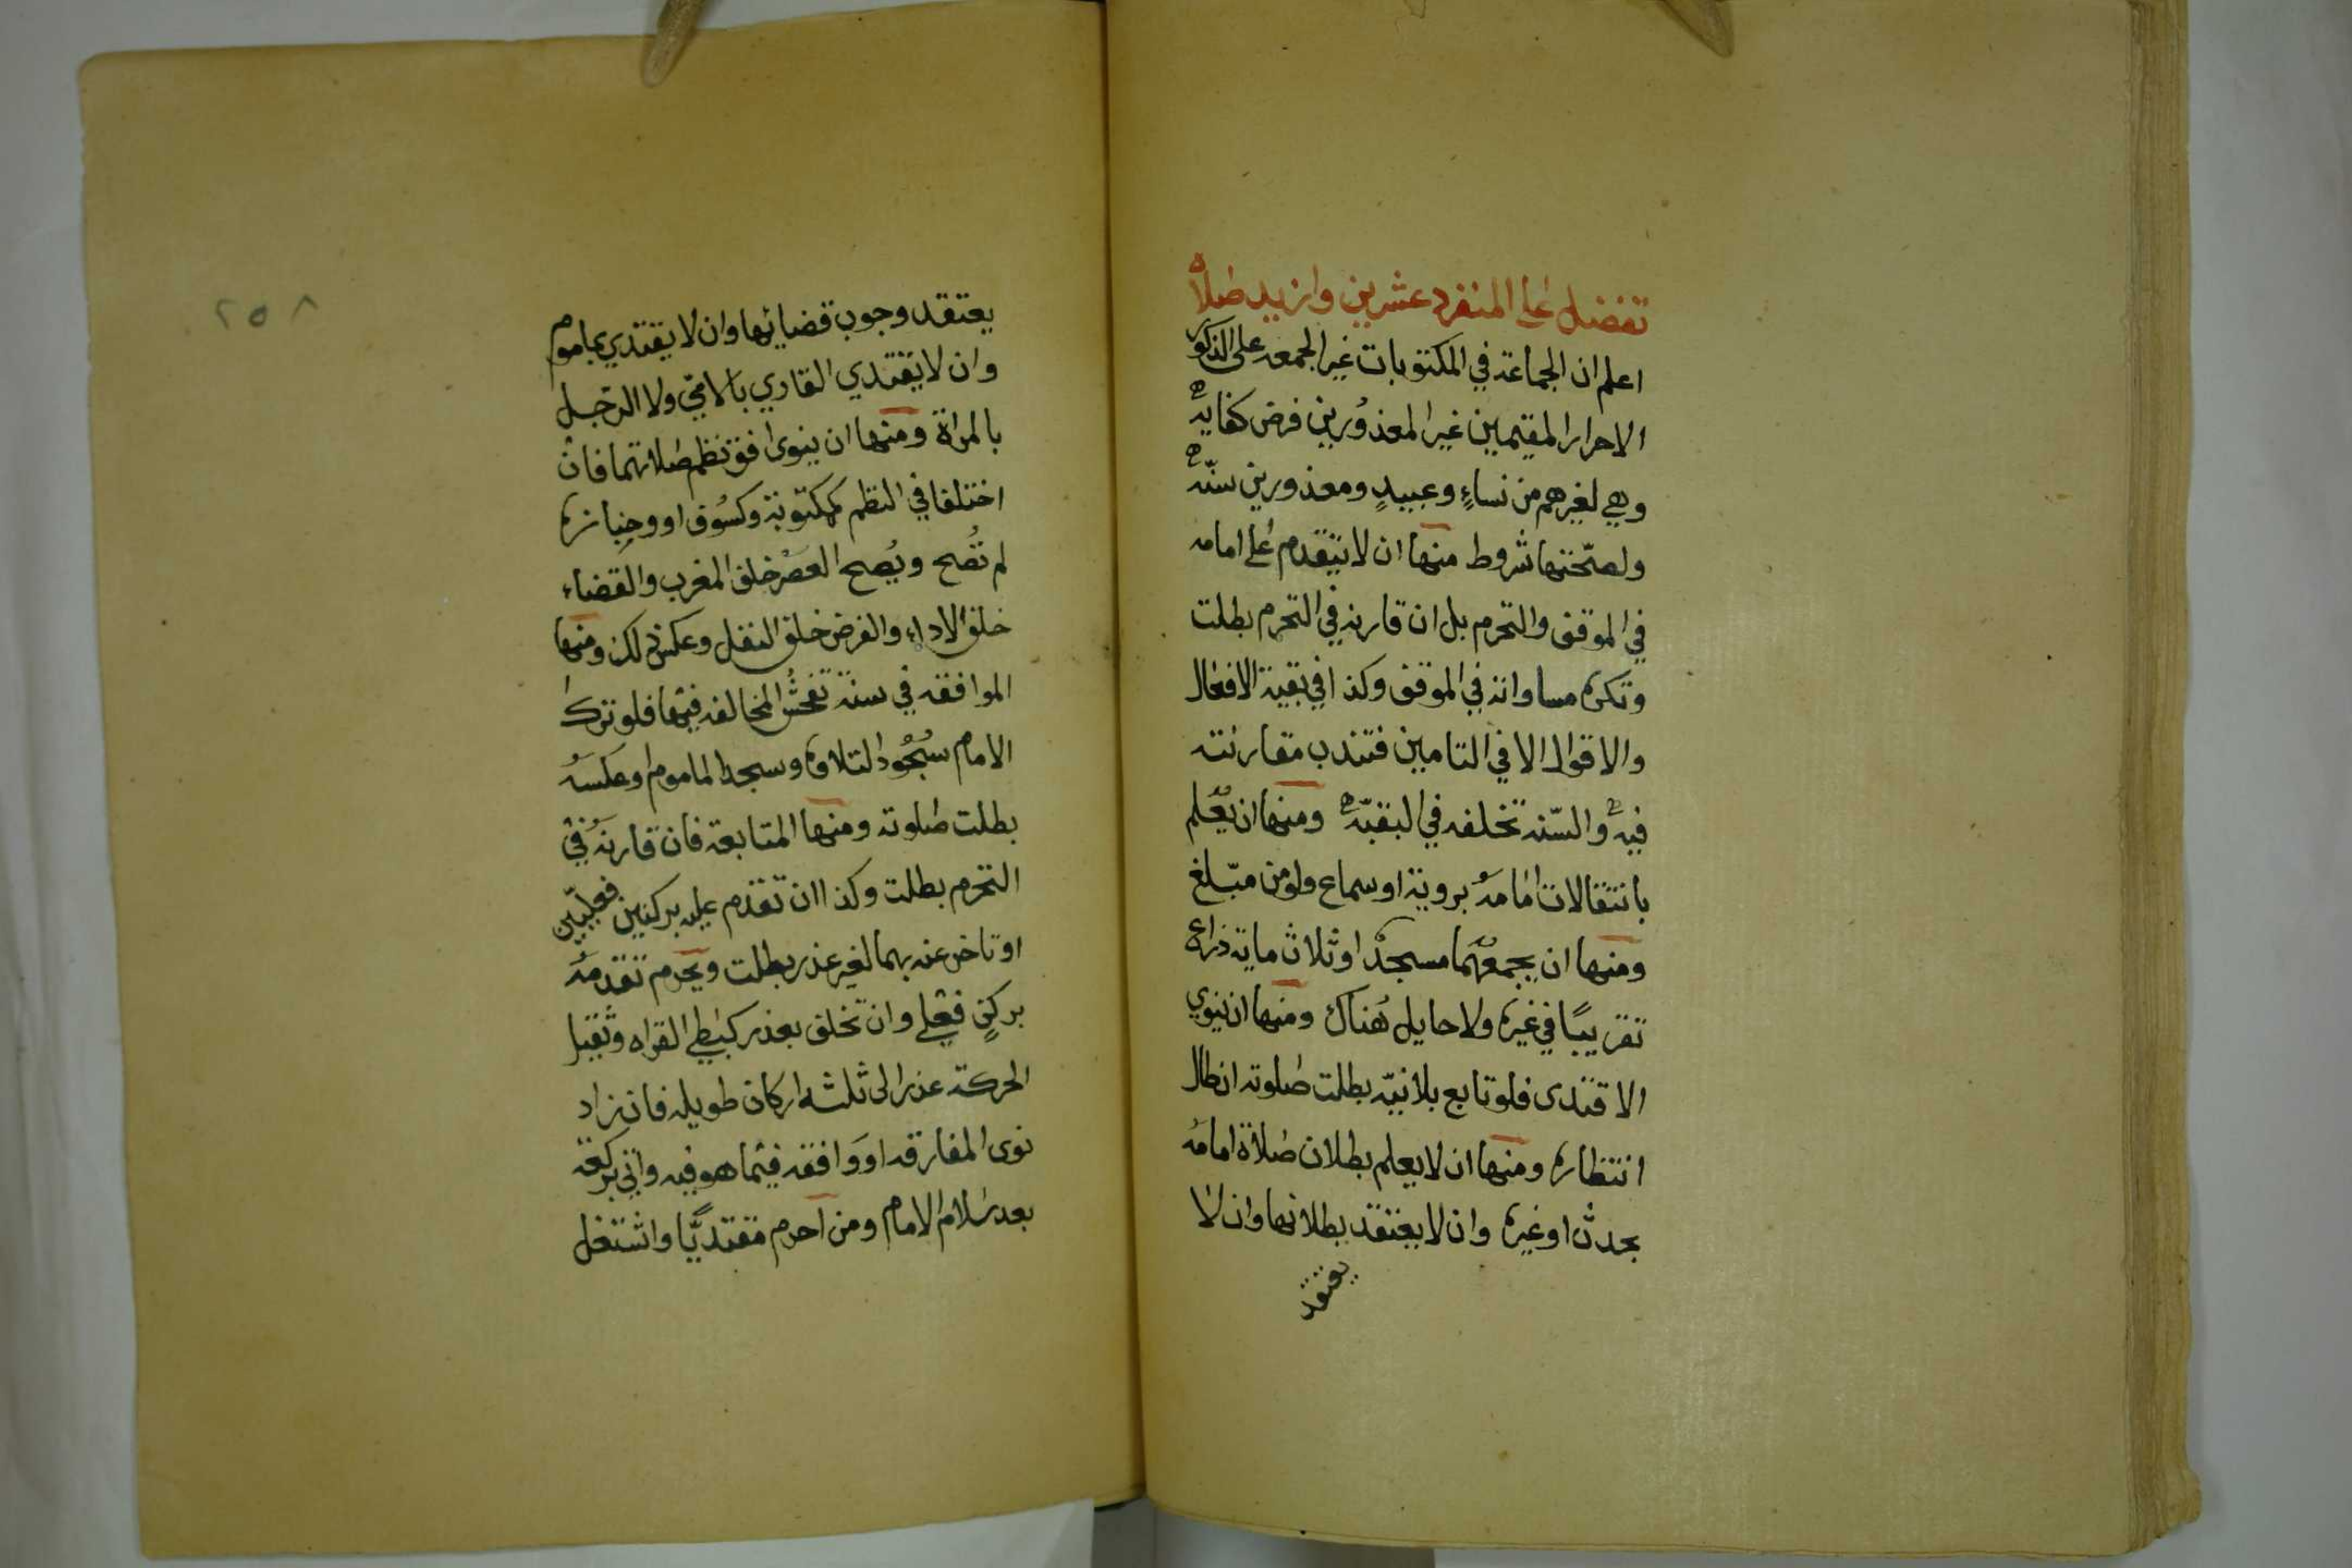 تفضل على المنفرد عشرين وازيد صلاة
اعلم ان الجماعة في المكتوبات غير الجمعه على الذكور
الاحرار المقيمين غير المعذورين فرض كفايه
وهي لغيرهم من نساءٍ وعبيدٍ ومعذورين سنّه
ولصحّتها شروط منها ان لا يتقدم على امامه
في الموقف والتحرم بل ان قارنه في التحرم بطلت
وتكره مساواته في الموقف وكذا في بقية الافعال
والاقوال الا في التامين فتندب مقارنته
فيه والسّنه تخلفه في البقيّه ومنها ان يعلم
بانتقالات امامه بروية او سماع ولو من مبلّغ
ومنها ان يجمعهما مسجد او ثلاث ماية ذراع
تقريبًا في غيره ولا حايل هُناك ومنها ان ينوي
الاقتدى فلو تابع بلا نيّه بطلت صلوته ان طال
انتظاره ومنها ان لا يعلم بطلان صلاة امامه
بحدث او غيره وان لا يعتقد بطلانها وان لا
يعتقد
٢٥٨
يعتقد وجوب قضائها وان لا يقتدي بماموم
وان لا يقتدي القاري بالامّي ولا الرّجل
بالمراة ومنها ان ينوى افق نظم صلاتهما فان
اختلفا في النظم كمكتوبة وكسوف او وجنازه
لم تُصح ويُصح العصر خلف المغرب والقضاء
خلف الاداء والفرض خلف النفل وعكس ذلك ومنها
الموافقه في سنة تفحُش المخالفه فيها فلو ترك
الامام سُجُود التلاوه وسجد الماموم او عكسه
بطلت صلوته ومنها المتابعة فان قارنهُ في
التحرم بطلت وكذا ان تقدم عليه بركنين فعليّين
او تاخر عنه بهما لغير عذر بطلت ويحرم تقدمه
بركنٍ فعلي وان تخلف بعذر كبطي القراه وثقيل
الحركة عذر الى ثلثه اركان طويله فان زاد
نوى المفارقه او وَافقه فيما هو فيه واتى بركعة
بعد سلام الامام ومن احرم مقتديًّا واشتغل